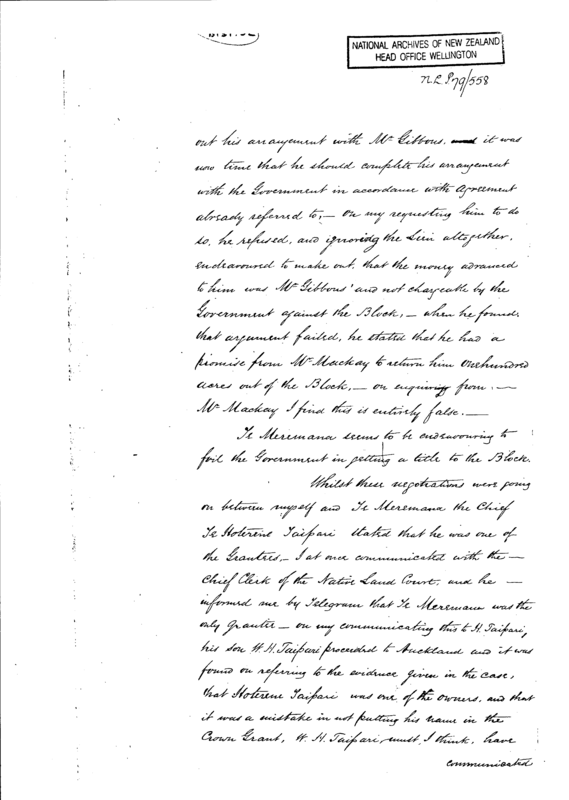 NATIONAL ARCHIVES OF NEW ZEALAND
HEAD OFFICE WELLINGTON
NLP 79/558
out his arrangement with Mr Gibbons. it was
now time that he should complete his arrangement
with the Government in accordance with Agreement
already referred to, — On my requesting him to do
so, he refused, and ignoring the Lien altogether,
endeavoured to make out, that the money advanced
to him was Mr Gibbons' and not chargeable by the
Government against the Block, — when he found,
that argument failed, he stated that he had a
promise from Mr Mackay to return him One hundred
acres out of the Block, — on enquiring from. —
Mr Mackay I find this is entirely false. —
Te Meremana seems to be endeavouring to
foil the Government in getting a title to the Block.
Whilst these negotiations were going
on between myself and Te Meremana the Chief
Te Hoterene Taipari stated that he was one of
the Grantees, — I at once communicated with the —
Chief Clerk of the Native Land Court, and he —
informed me by Telegram that Te Meremana was the
only Grantee — on my communicating this to H. Taipari,
his son W. H. Taipari proceeded to Auckland and it was
found on referring to the evidence given in the case,
that Hoterene Taipari was one of the owners, and that
it was a mistake in not putting his name in the
Crown Grant, W. H. Taipari, must, I think, have
communicated